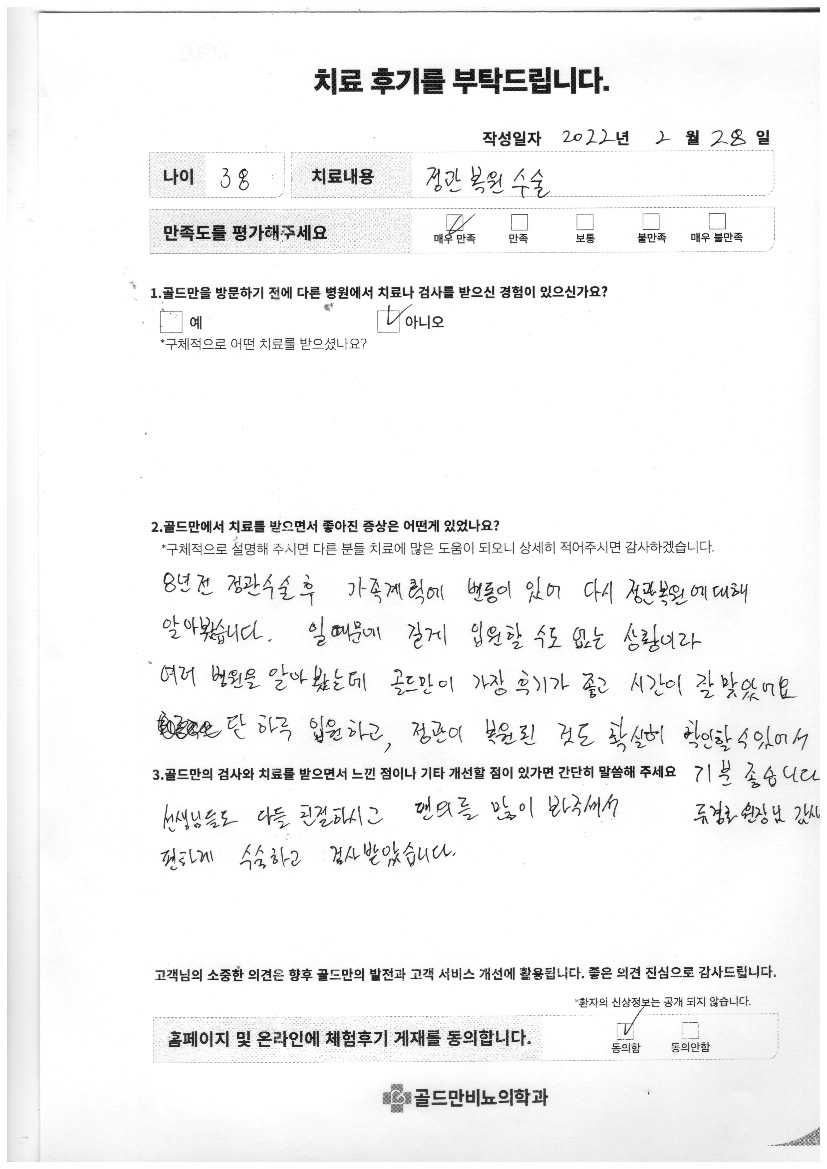 치료 후기를 부탁드립니다.
작성일자 2022년 2월 28일
나이 38 치료내용 정관 복원 수술
만족도를 평가해주세요
매우 만족 만족 보통 불만족 매우 불만족
1.골드만을 방문하기 전에 다른 병원에서 치료나 검사를 받으신 경험이 있으신가요?
예 아니오
*구체적으로 어떤 치료를 받으셨나요?
2.골드만에서 치료를 받으면서 좋아진 증상은 어떤게 있었나요?
*구체적으로 설명해 주시면 다른 분들 치료에 많은 도움이 되오니 상세히 적어주시면 감사하겠습니다.
8년전 정관수술 후 가족계획에 변동이 있어 다시 정관복원에 대해
알아봤습니다. 일 때문에 길게 입원할 수도 없는 상황이라
여러 병원을 알아봤는데 골드만이 가장 후기가 좋고 시간이 잘 맞았어요
단 하루 입원하고, 정관이 복원된 것도 확실히 확인할 수 있어서
기분 좋습니다
3.골드만의 검사와 치료를 받으면서 느낀 점이나 기타 개선할 점이 있가면 간단히 말씀해 주세요
선생님들도 다들 친절하시고 편의를 많이 봐주셔서
원장님 감사
편하게 수술하고 검사받았습니다.
고객님의 소중한 의견은 향후 골드만의 발전과 고객 서비스 개선에 활용됩니다. 좋은 의견 진심으로 감사드립니다.
*환자의 신상정보는 공개 되지 않습니다.
홈페이지 및 온라인에 체험후기 게재를 동의합니다.
동의함 동의안함
골드만비뇨의학과